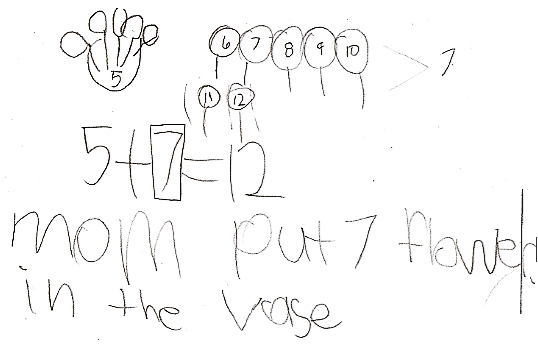 6 7 8 9 10 7
5
11 12
5+7=12
mom put 7 flowers
in the vase